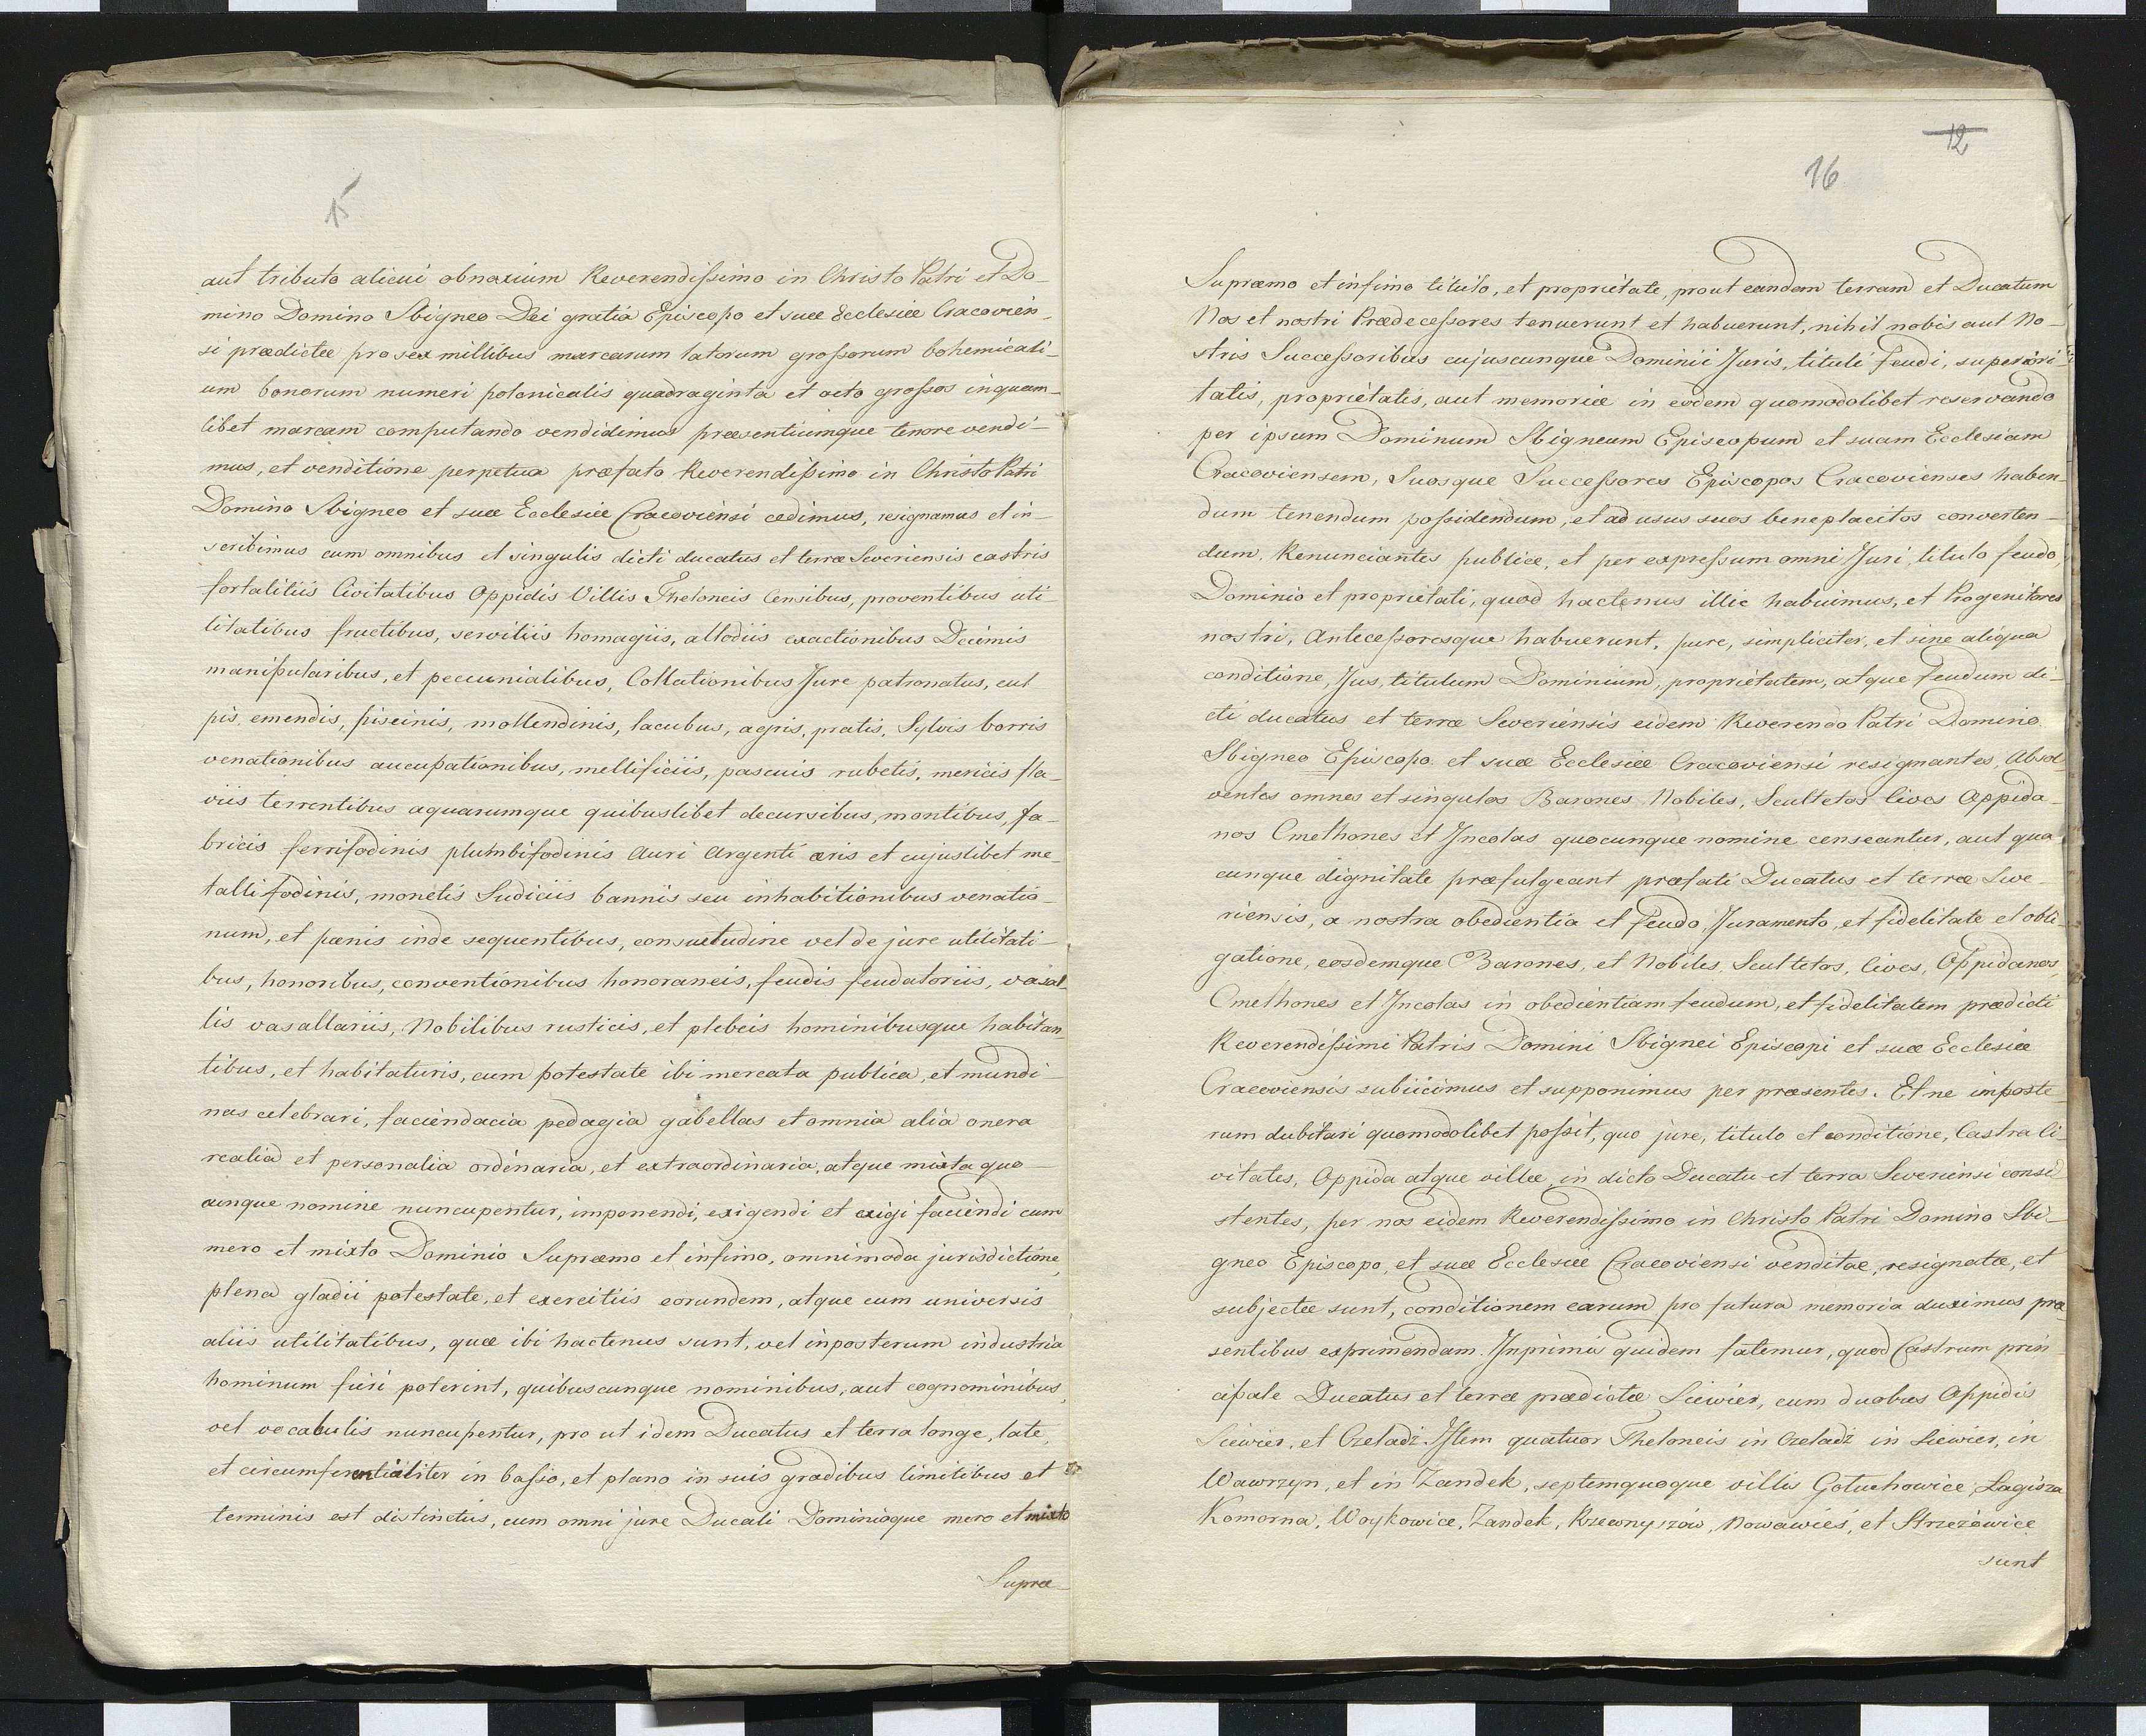 15
aut tributo alicui obnoxium Reverendissimo in Christo Patri et Do-
mino Domino Sbigneo Dei gratia Episcopo et suæ Ecclesiæ Cracovien-
si prædictæ pro sex millibus marcarum latorum grossorum bohemicali-
um bonorum numeri polonicalis quadraginta et octo grossos in quam-
libet marcam computando vendidimus præsentiumque tenore vendi-
mus, et venditione perpetua præfato Reverendissimo in Christo Patri
Domino Sbigneo et suæ Ecclesiæ Cracoviensi cedimus, resignamus et in-
scribimus cum omnibus et singulis dicti ducatus et terræ Severiensis castris
fortalitiis Civitatibus Oppidis Villis Theloneis Censibus, proventibus uti-
litatibus fructibus, servitiis homagiis, allodiis exactionibus Decimis
manipularibus, et pecunialibus, Collationibus Jure patronatus, cul
pis, emendis, piscinis, mollendinis, lacubus, agris, pratis, Sylvis borris
venationibus aucupationibus, mellificiis, pascuis rubetis, mericis flu-
viis torrentibus aquarumque quibuslibet decursibus, montibus, fa-
bricis ferrifodinis plumbifodinis Auri Argenti æris et cujuslibet me-
tallifodinis, monetis Judiciis bannis seu inhabitionibus venatio-
num, et pœnis inde sequentibus, consuetudine vel de jure utilitati-
bus, honoribus, conventionibus honoraneis, feudis feudatoriis, vasal-
lis vasallariis, Nobilibus rusticis, et plebeis hominibusque habitan-
tibus, et habitaturis, cum potestate ibi mercata publica, et mundi-
nas celebrari, faciendacia pedagia gabellas et omnia alia onera
realia et personalia ordinaria, et extraordinaria, atque mixta quo-
cunque nomine nuncupentur, imponendi, exigendi et exigi faciendi cum
mero et mixto Dominio Supræmo et infimo, omnimoda jurisdictione,
plena gladii potestate, et exercitiis eorundem, atque cum universis
aliis utilitatibus, quæ ibi hactenus sunt, vel inposterum industria
hominum fieri poterint, quibuscunque nominibus, aut cognominibus,
vel vocabulis nuncupentur, pro ut idem Ducatus et terra longe, late,
et circumferentialiter in basso, et plano in suis gradibus limitibus et
terminis est distinctus, cum omni jure Ducali Dominioque mero et mixto
Supræ-
12
16
Supræmo et infimo titulo, et proprietate, prout eandem terram et Ducatum
Nos et nostri Prædecessores tenuerunt et habuerunt, nihil nobis aut No-
stris Successoribus cujuscunque Dominii Juris, tituli feudi, superiori-
tatis, proprietatis, aut memoriæ in eodem quomodolibet reservando
per ipsum Dominum Sbigneum Episcopum et suam Ecclesiam
Cracoviensem, Suosque Successores Episcopos Cracovienses haben-
dum tenendum possidendum, et ad usus suos beneplacitos converten-
dum. Renunciantes publice, et per expressum omni Juri, titulo feudo,
Dominio et proprietati, quod hactenus illic habuimus, et Progenitores
nostri, Antecessoresque habuerunt, pure, simpliciter, et sine aliqua
conditione, Jus, titulum Dominium, proprietatem, atque feudum di-
cti ducatus et terræ Severiensis eidem Reverendo Patri Domino
Sbigneo Episcopo et suæ Ecclesiæ Cracoviensi resignantes, Absol-
ventes omnes et singulos Barones Nobiles, Scultetos Cives Oppida-
nos Cmethones et Incolas quocunque nomine censeantur, aut qua-
cunque dignitate præfulgeant præfati Ducatus et terræ Seve-
riensis, a nostra obedientia et feudo, Juramento, et fidelitate et obli-
gatione, eosdemque Barones, et Nobiles, Scultetos, Cives, Oppidanos,
Cmethones et Incolas in obedientiam feudum, et fidelitatem prædicti
Reverendissimi Patris Domini Sbignei Episcopi et suæ Ecclesiæ
Cracoviensis subiicimus et supponimus per præsentes. Et ne imposte-
rum dubitari quomodolibet possit, quo jure, titulo et conditione, Castra Ci-
vitates, Oppida atque villæ, in dicto Ducatu et terra Severiensi consi-
stentes, per nos eidem Reverendissimo in Christo Patri Domino Sbi-
gneo Episcopo, et suæ Ecclesiæ Cracoviensi venditæ, resignatæ, et
subjectæ sunt, conditionem earum pro futura memoria duximus præ-
sentibus exprimendam. Inprimis quidem fatemur, quod Castrum prin-
cipale Ducatus et terræ prædictæ Siewier, cum duobus Oppidis
Siewier, et Czeladź. Item quatuor Theloneis in Czeladź in Siewier, in
Wawrzyn, et in Zandek, septemquoque villis Gołuchowice, Łagisza
Komorna, Woykowice, Zandek, Krzewnyszów, Nowawieś, et Strzeżowice
sunt